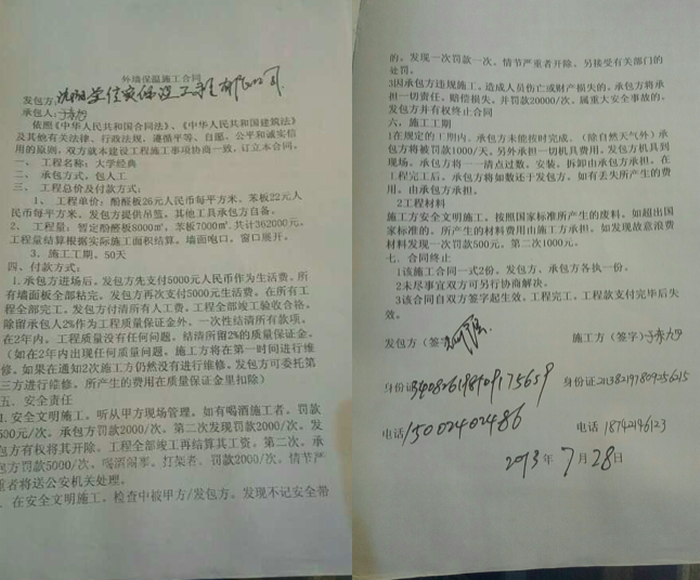 外墙保温施工合同
发包方:沈阳 工程有限公司
承包人:
依照《中华人民共和国合同法》、《中华人民共和国建筑法》
及其有关法律、行政法规、遵循平等、自愿、公平和诚实信
用的原则,双方就本建设工程施工事项协商一致,订立本合同。
一、 工程名称:大学经典
二、 承包方式:包人工
三、 工程总价及付款方式:
1、工程单价:酚醛板26元人民币每平方米、苯板22元人
民币每平方米、发包方提供吊篮,其他工具承包方自备。
2、工程量:暂定酚醛板8000m²,苯板7000m²,共计362000元,
工程量结算根据实际施工面积结算,墙面咆口,窗口展开。
3、施工工期、50天
四、付款方式:
1.承包方进场后,发包方先支付5000元人民币作为生活费,所
有墙面板全部粘完,发包方再次支付5000元生活费。在所有工
程全部完工,发包方付清所有人工费。工程全部竣工验收合格,
除留承包人2%作为工程质量保证金外、一次性结清所有款项。
在2年内,工程质量没有任何问题,结清所留2%的质量保证金。
(如在2年内出现任何质量问题,施工方将在第一时间进行维
修,如果在通知2次施工方仍然没有进行维修,发包方可委托第
三方进行维修,所产生的费用在质量保证金里扣除)
五、安全责任
1.安全文明施工,听从甲方现场管理。如有喝酒施工者,罚款
500元/次,承包方罚款2000/次、第二次发现罚款2000/次,发
包方有权将其开除、工程全部竣工再结算其工资。第二次、承
包方罚款5000/次、喝酒闹事、打架者、罚款2000/次,情节严
重者将送公安机关处理。
、在安全文明施工,检查中被甲方/发包方,发现不记安全带
的,发现一次罚款一次,情节严重者开除,另接受有关部门的
处罚。
3因承包方违规施工,造成人员伤亡或财产损失的,承包方将承
担一切责任。赔偿损失,并罚款20000/次。属重大安全事故的,
发包方并有权终止合同
六、施工工期
1在规定的工期内,承包方未能按时完成,(除自然天气外)承
包方将被罚款1000/天,另外承担一切机具费用。发包方机具到
现场,承包方将一一清点过数,安装,拆卸由承包方承担,在
工程完工后,承包方将如数还于发包方,如有丢失所产生的费
用,由承包方承担。
2工程材料
施工方安全文明施工,按照国家标准所产生的废料,如超出国
家标准的,所产生的材料费用由施工方承担,如发现故意浪费
材料发现一次罚款500元,第二次1000元。
七、合同终止
1该施工合同一式2份,发包方、承包方各执一份。
2未尽事宜双方可另行协商解决。
3该合同自双方签字起生效,工程完工,工程款支付完毕后失
效。
发包方(签字) 施工方(签字)
身份证340826198109175659 身份证211382197809256​15
电话15002402486 电话 18742196123
2013年7月28日